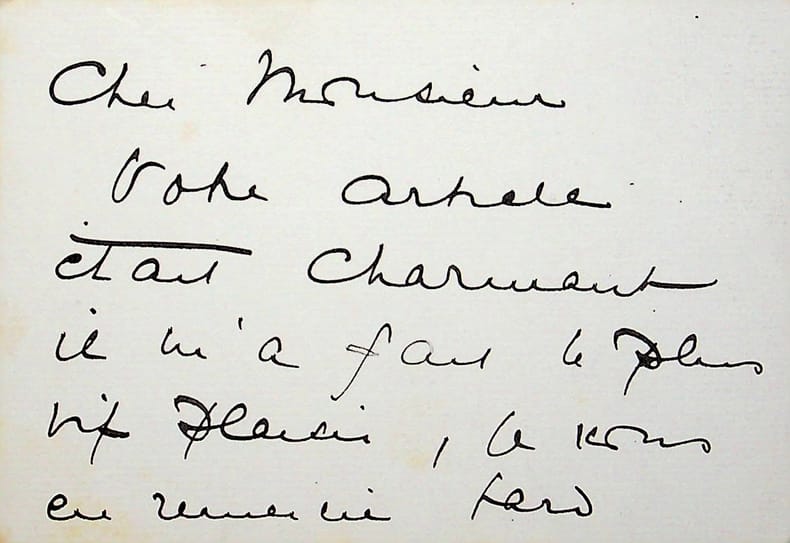 Cher Monsieur
Votre article
était Charmant
il m'a fait le plus
vif plaisir, je vous
en remercie tard